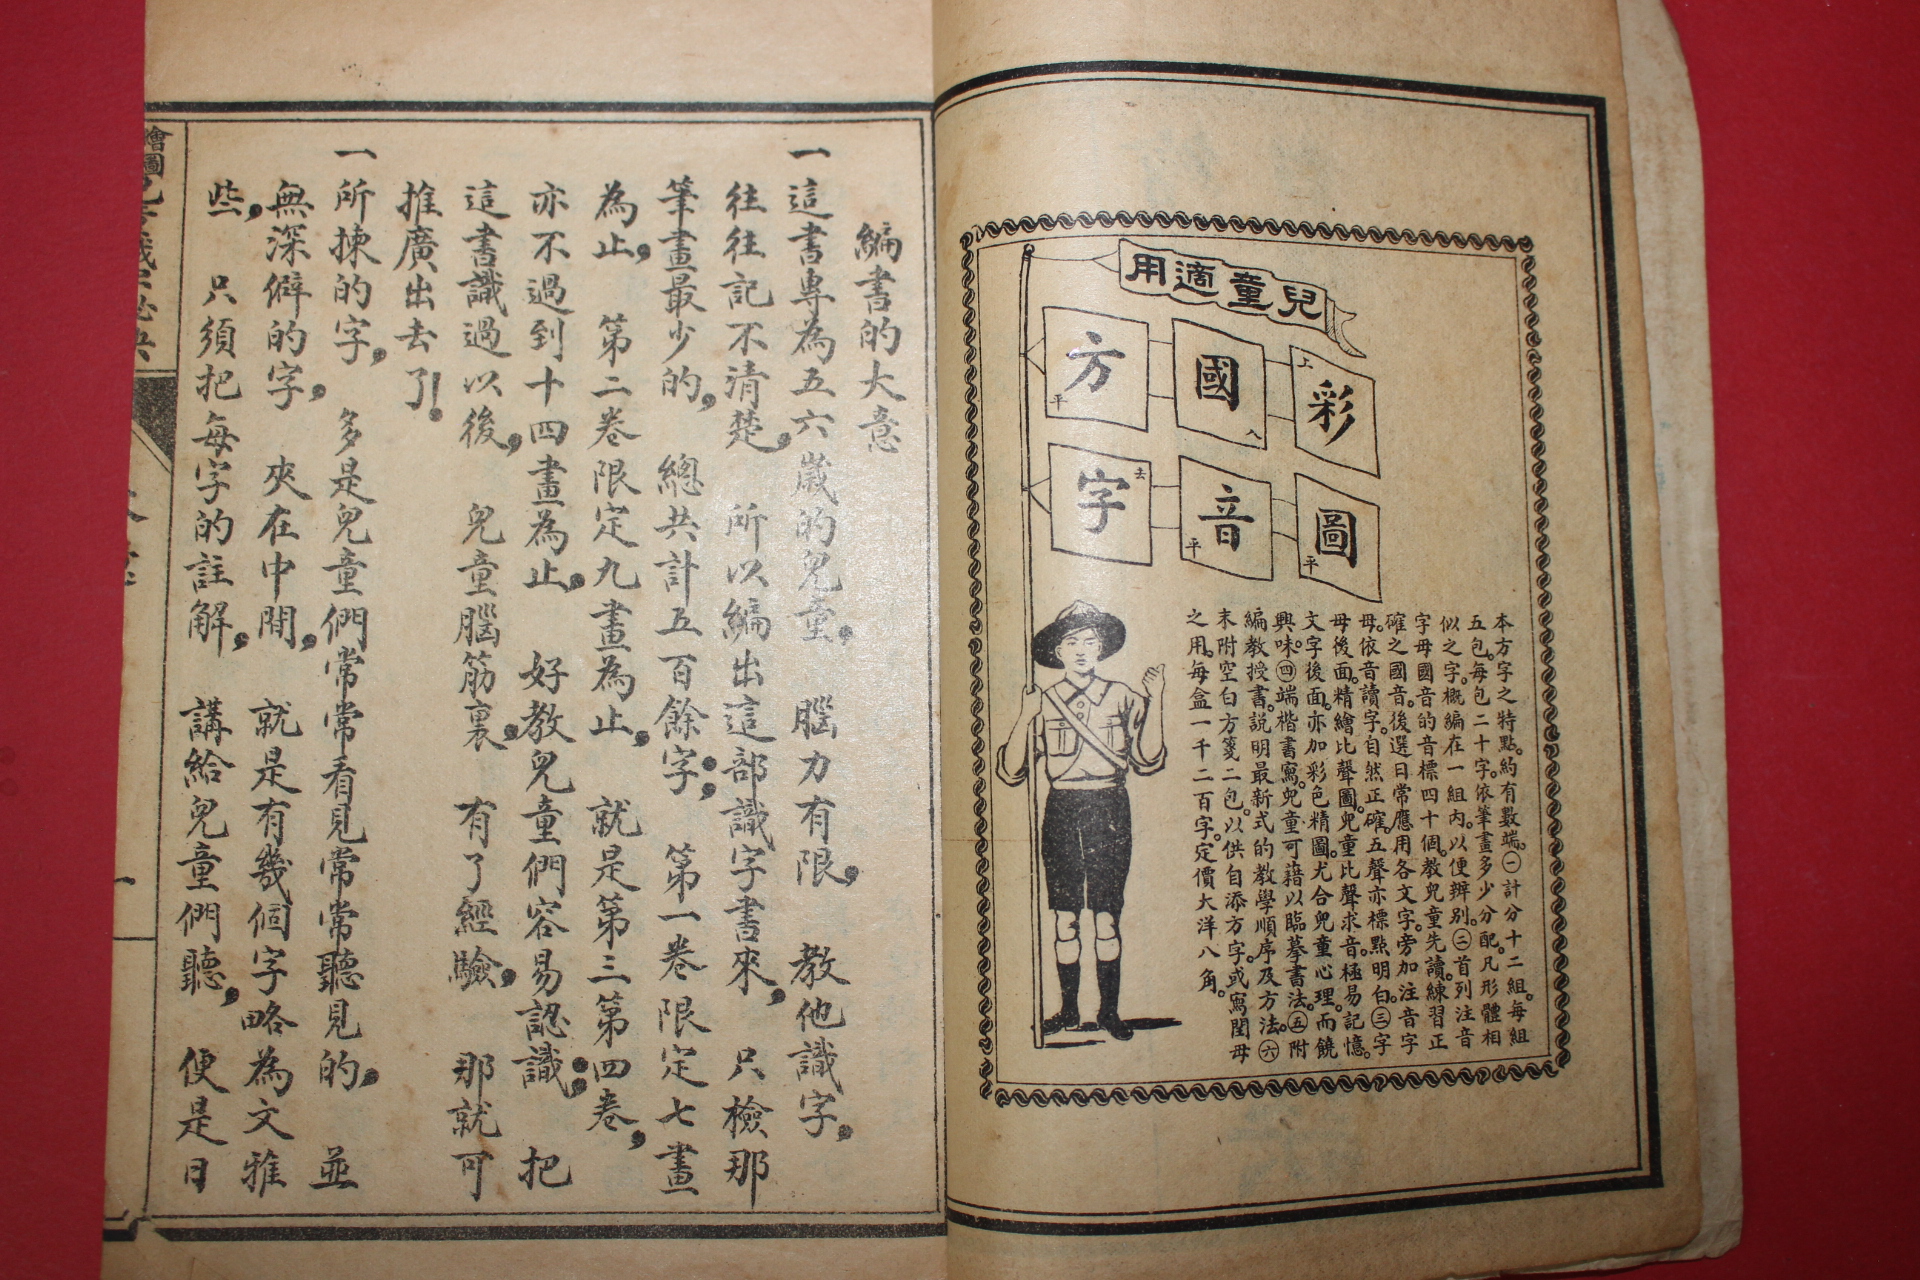 兒童適用
彩圖
國音
方字
上
平
入
平
平
去
本方字之特點。約有數端。㊀計分十二組。每組
五包。每包二十字。依筆畫多少分配。凡形體相
似之字。概編在一組內。以便辨別。㊁首列注音
字母國音的音標四十個。教兒童先讀。練習正
確之國音。後選日常應用各文字。旁加注音字
母。依音讀字。自然正確。五聲亦標點明白。㊂字
母後面。精繪比聲圖。兒童比聲求音。極易記憶。
文字後面。亦加彩色精圖。尤合兒童心理。而饒
興味。㊃端楷書寫。兒童可藉以臨摹書法。㊄附
編教授書。說明最新式的教學順序及方法。㊅
末附空白方箋二包。以供自添方字。或寫閏母
之用。每盒一千二百字。定價大洋八角。
編書的大意
一這書專為五六歲的兒童，腦力有限，教他識字，
往往記不清楚，所以編出這部識字書來，只檢那
筆畫最少的，總共計五百餘字；第一卷限定七畫
為止，第二卷限定九畫為止，就是第三第四卷，
亦不過到十四畫為止，好教兒童們容易認識；把
這書識過以後，兒童腦筋裏，有了經驗，那就可
推廣出去了！
一所揀的字，多是兒童們常常看見常常聽見的，並
無深僻的字，夾在中間，就是有幾個字略為文雅
些，只須把每字的註解，講給兒童們聽，便是日
繪圖
一